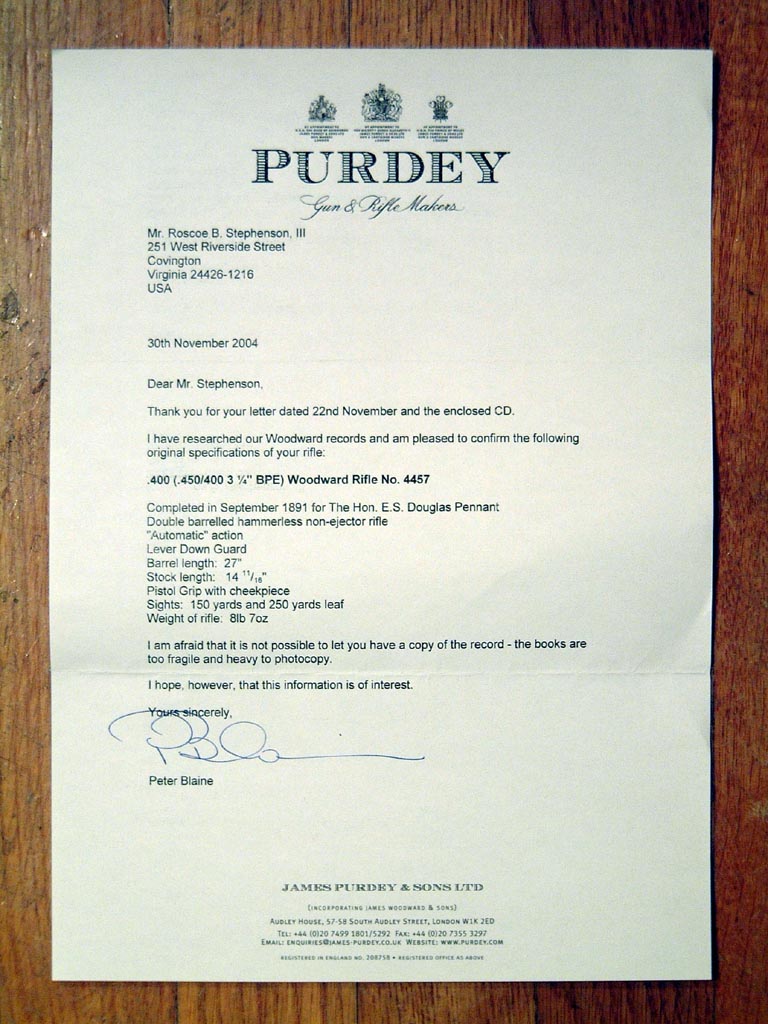 PURDEY
Gun & Rifle Makers
Mr. Roscoe B. Stephenson, III
251 West Riverside Street
Covington
Virginia 24426-1216
USA
30th November 2004
Dear Mr. Stephenson,
Thank you for your letter dated 22nd November and the enclosed CD.
I have researched our Woodward records and am pleased to confirm the following
original specifications of your rifle:
.400 (.450/400 3 ¼" BPE) Woodward Rifle No. 4457
Completed in September 1891 for The Hon. E.S. Douglas Pennant
Double barrelled hammerless non-ejector rifle
"Automatic" action
Lever Down Guard
Barrel length: 27"
Stock length: 14 11/16"
Pistol Grip with cheekpiece
Sights: 150 yards and 250 yards leaf
Weight of rifle: 8lb 7oz
I am afraid that it is not possible to let you have a copy of the record - the books are
too fragile and heavy to photocopy.
I hope, however, that this information is of interest.
Yours sincerely,
Peter Blaine
JAMES PURDEY & SONS LTD
(INCORPORATING JAMES WOODWARD & SONS)
AUDLEY HOUSE, 57-58 SOUTH AUDLEY STREET, LONDON W1K 2ED
TEL: +44 (0)20 7499 1801/5292 FAX: +44 (0)20 7355 3297
EMAIL: ENQUIRIES@JAMES-PURDEY.CO.UK WEBSITE: WWW.PURDEY.COM
REGISTERED IN ENGLAND NO. 208758 • REGISTERED OFFICE AS ABOVE